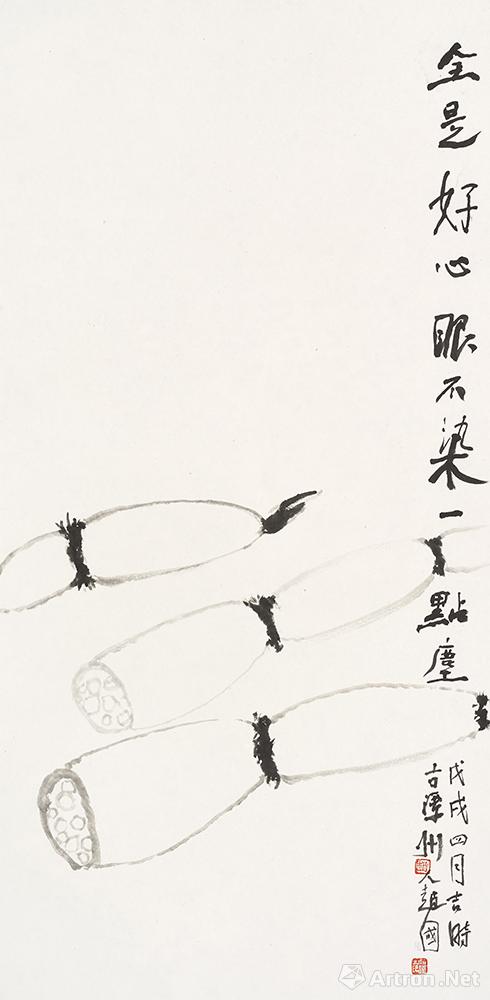 全是好心眼不染一點塵
戊戌四月吉時
古潭州人趙國
Artron.Net